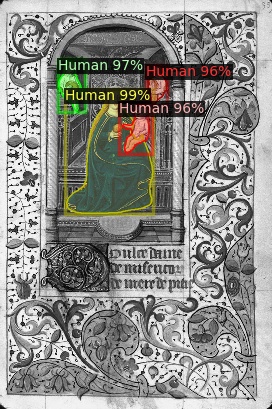 Human 97%
Human 96%
Human 99%
Human 96%
Doulce dame
de misericor
de mere de pitie